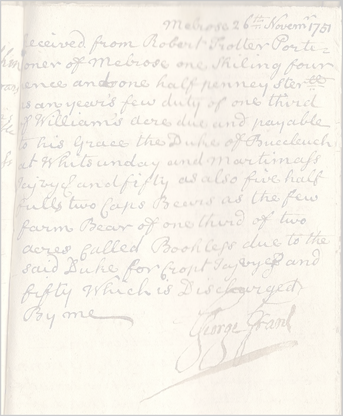 Melrose 26th Novemr. 1751
Received from Robert Trotter Porti=
oner of Melrose one Shiling four
pence and one half penney Ster
as an years few duty of one third
of William's acre due and payable
to his Grace the Duke of Buccleuch
at Whitsunday and Martimass
and fifty as also five half
fulls two Caps Bears as the few
farm Bear of one third of two
acres Called Bookless due to the
said Duke for Cropt and
fifty Which is Discharged
By me
George Grant